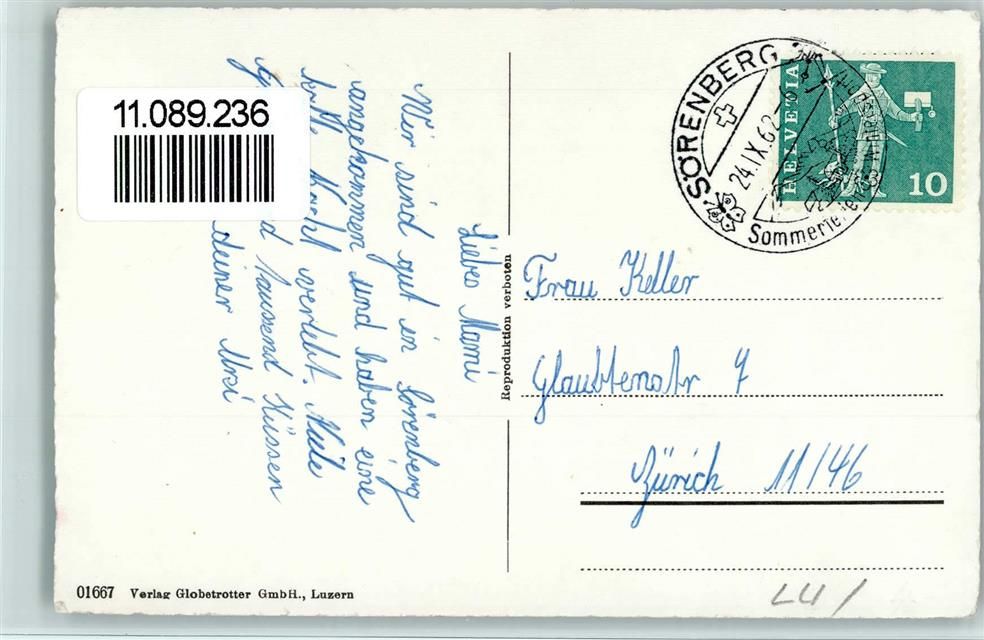 11.089.236
Liebes Mami
Wir sind gut in Sörenberg
angekommen und haben eine
Nacht verlebt. Viele
tausend Küssen
deiner Ursi
Reproduktion verboten
SÖRENBERG
24.IX.62
HELVETIA
10
Frau Keller
Glaubtenstr 7
Zürich 11/46
01667 Verlag Globetrotter GmbH., Luzern
LU /